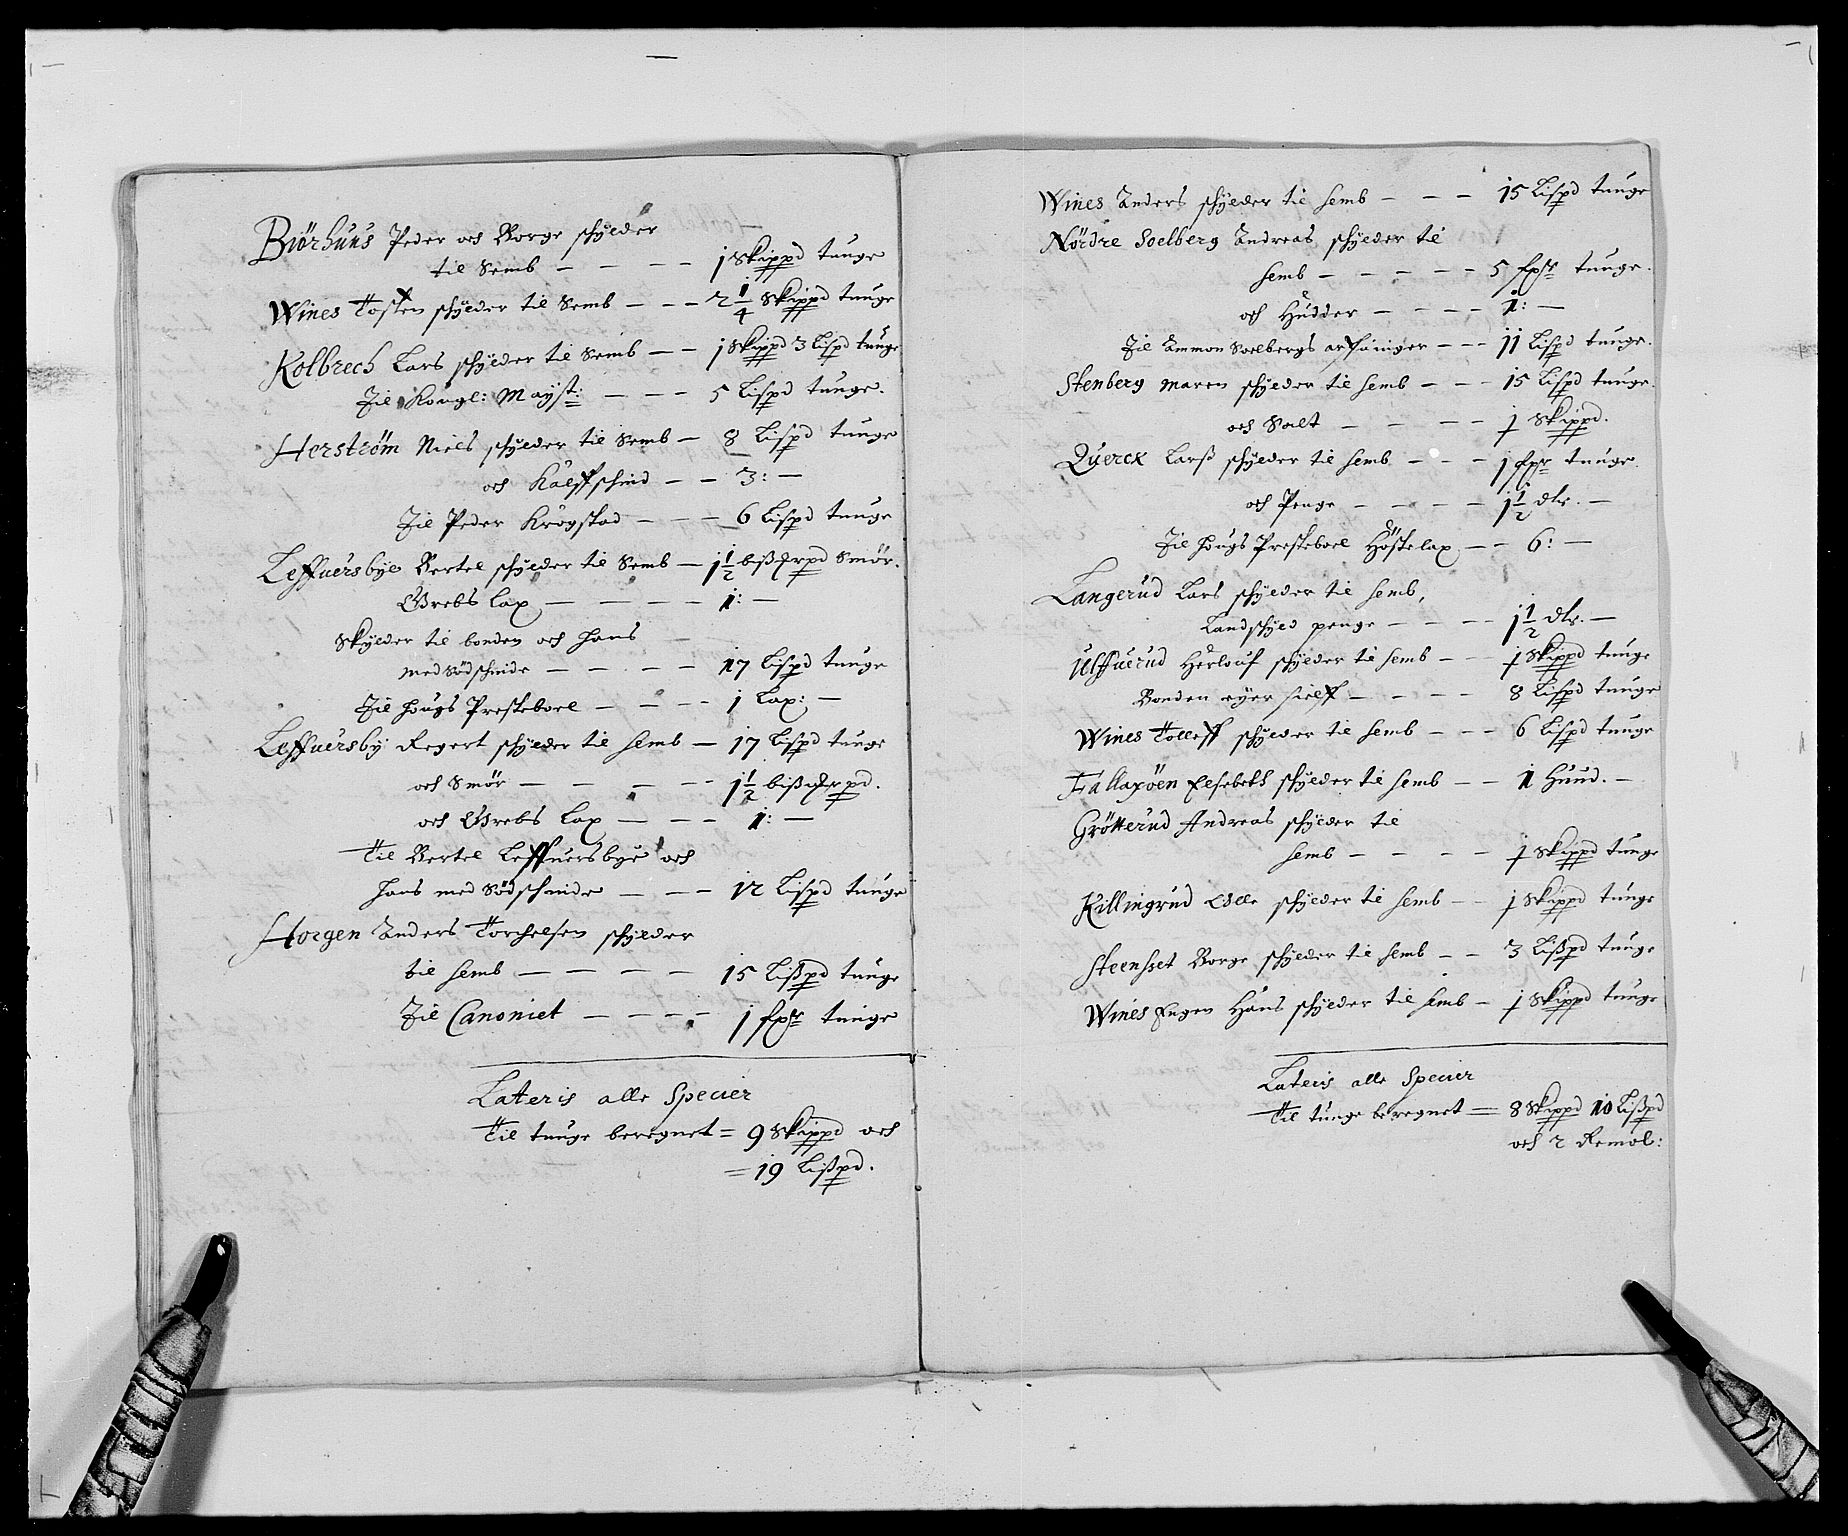 Biörhuus Peder och Borge schylder
til Semb — — — — 1 Skippd tunge
Wines Tosten schylder til Semb — — — 2 1/4 Skippd tunge
Kolbrech Lars schylder til Semb — — 1 Skippd 3 Lispd tunge
Til Kongl: Mayst: — — — 5 Lispd tunge.
Herström Niels schylder til Semb — 8 Lispd tunge
och Kalffschind — — 3: —
Til Peder Krogstad — — — 6 Lispd tunge
Leffuersbye Bertel schylder til Semb — 1 1/2 bißmrpd Smör.
Grebs Lax — — — — 1: —
Skylder til bonden och hans
med Södschinde — — — — 17 Lispd tunge
Til Hougs Presteboel — — — 1 Lax: —
Leffuersby Regert schylder til Semb — 17 Lispd tunge
och Smör — — — — 1 1/2 bißmrpd.
och Grebs Lax — — — 1: —
Til Bertel Leffuersbye och
hans med Södschinde — — — 12 Lispd tunge
Horgen Anders Torchelsen schylder
til Semb — — — — 15 Lißpd tunge
Til Canoniet — — — — 1 fpr tunge
Lateris alle Specier
Til tunge beregnet = 9 Skippd och
= 19 Lißpd.
Wines Anders schylder til Semb — — — 15 Lispd tunge
Nördre Soelberg Andreas schylder til
Semb — — — — 5 fpr tunge.
och Hudder — — — — 1: —
Til Ammon Soelbergs arfuinger — — — 11 Lispd tunge.
Stenberg Maren schylder til Semb — — — 15 Lispd tunge.
och Salt — — — — 1 Skippd.
Querck Larß schylder til Semb — — — 1 fpr tunge.
och Penge — — — — 1 1/2 dlr. —
Til Hougs Presteboel Höstelax — — 6: —
Langerud Lars schylder til Semb,
Landschyld penge — — — — 1 1/2 dlr. —
Ulffuerud Herlouf schylder til Semb — — 1 Skippd tunge
Bonden eyer sielff — — — — 8 Lispd tunge
Wines Tolleff schylder til Semb — — — 6 Lispd tunge
Fallaxöen Elsebeth schylder til Semb — — 1 Huud. —
Grötterud Andreas schylder til
Semb — — — — 1 Skippd tunge
Killingrud Olle schylder til Semb — — 1 Skippd tunge
Steenset Borge schylder til Semb — — 3 Lißpd tunge
Wines Engen Hans schylder til Semb — 1 Skippd tunge
Lateris alle Specier
Til tunge beregnet = 8 Skippd 10 Lißpd
och 2 Remol: